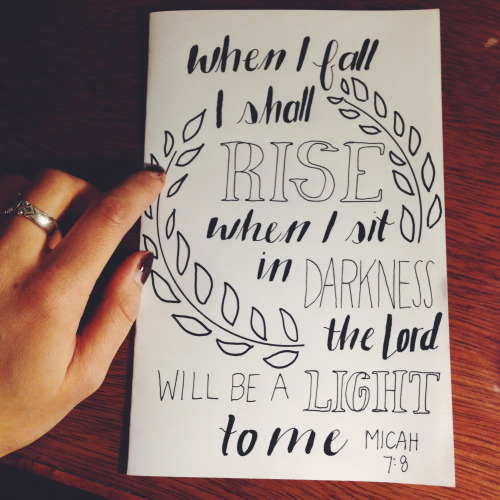 when I fall
I shall
RISE
when I sit
in DARKNESS
the Lord
WILL BE A LIGHT
to me MICAH
7:8